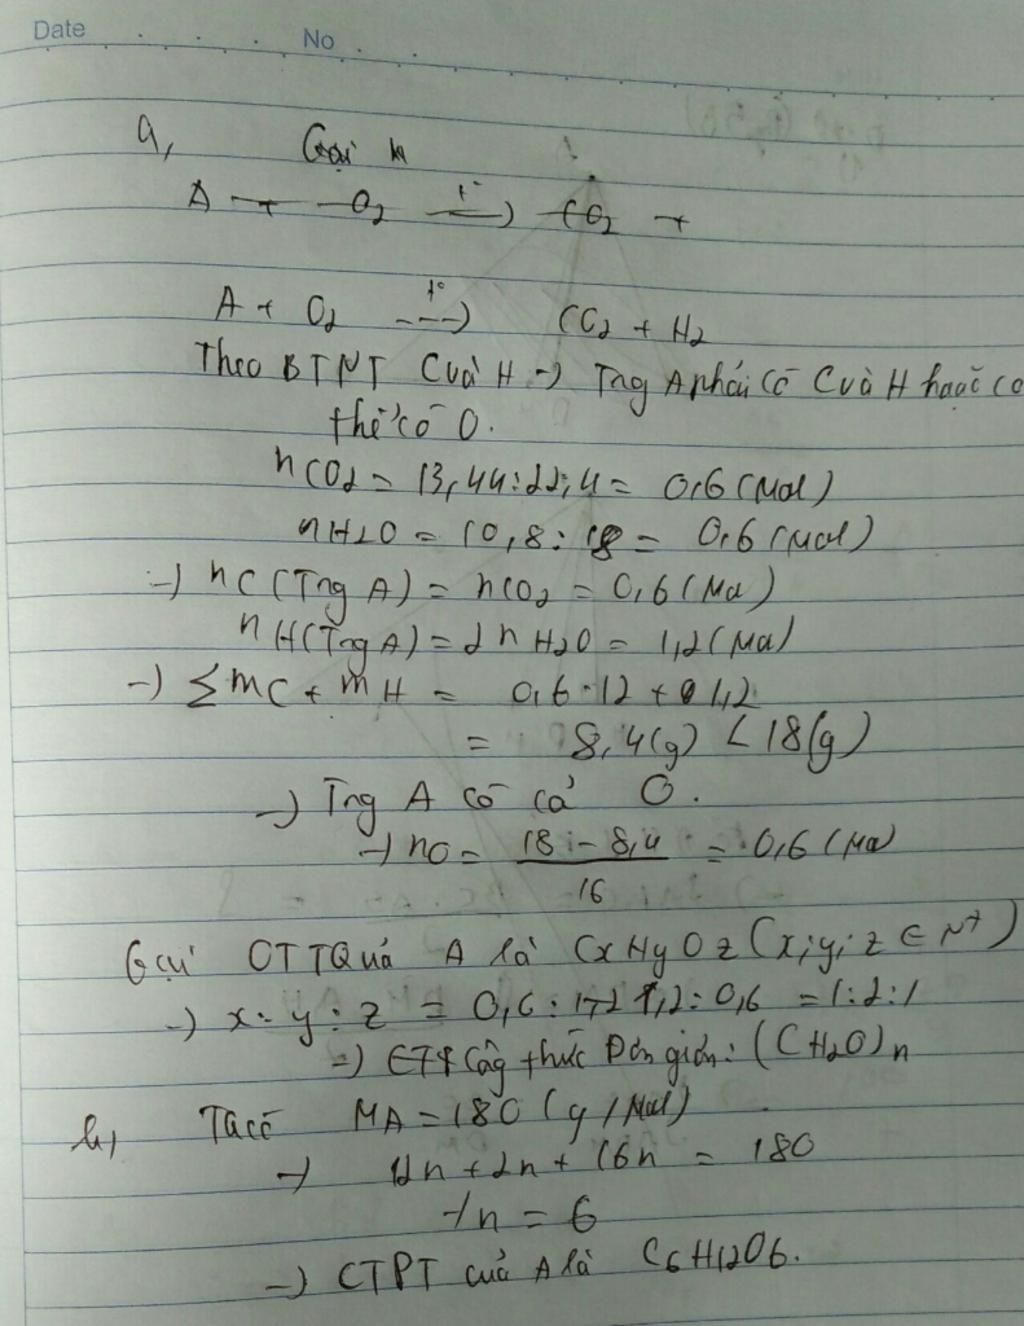 Date No
a, Gọi
A + O2 t° CO2 +
A + O2 t° ---) CO2 + H2
Theo BTNT C và H -) Trg A phải có C và H hoặc có
thể có O.
nCO2 = 13,44:22,4 = 0,6 (Mol)
nH2O = 10,8 : 18 = 0,6 (Mol)
-) nC (Trg A) = nCO2 = 0,6 (Mol)
nH (Trg A) = 2nH2O = 1,2 (Mol)
-) ΣmC + mH = 0,6.12 + 1,2
= 8,4(g) < 18(g)
-) Trg A có cả O.
-) nO = \frac{18 - 8,4}{16} = 0,6 (Mol)
Gọi CTTQ của A là CxHyOz (x;y;z ∈ N*)
-) x:y:z = 0,6 : 1,2 : 0,6 = 1:2:1
=) Công thức Đơn giản: (CH2O)n
b, Ta có MA = 180 (g/Mol)
-) 12n + 2n + 16n = 180
-) n = 6
-) CTPT của A là C6H12O6.